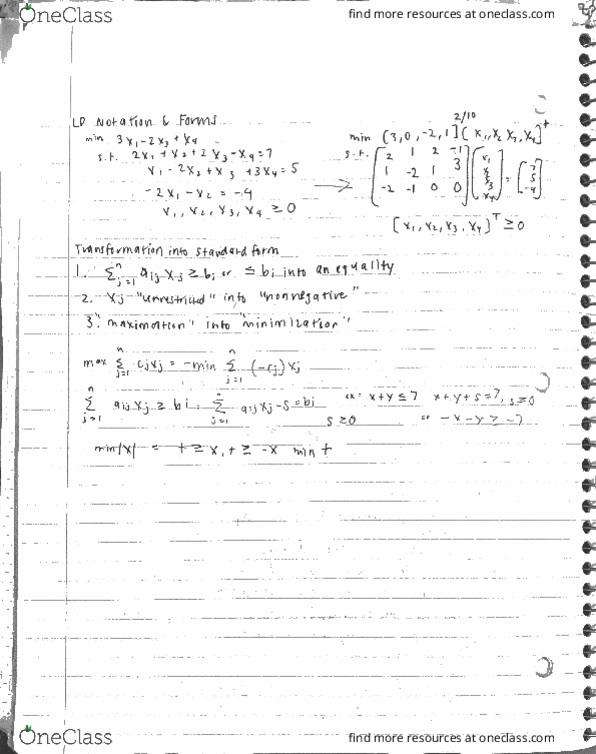 OneClass
find more resources at oneclass.com
2/10
LP Notation & Forms
min 3x₁-2x₃+x₄
s.t. 2x₁+x₂+2x₃-x₄=7
x₁-2x₂+x₃+3x₄=5
-2x₁-x₂=-4
x₁,x₂,x₃,x₄≥0
min [3,0,-2,1][x₁,x₂,x₃,x₄]ᵀ
s.t. [2 1 2 -1
1 -2 1 3
-2 -1 0 0][x₁ x₂ x₃ x₄] = [7 5 -4]
[x₁,x₂,x₃,x₄]ᵀ≥0
Transformation into standard form
1. Σⁿⱼ₌₁ aᵢⱼxⱼ≥bᵢ or ≤bᵢ into an equality
2. xⱼ "unrestricted" into "nonnegative"
3. "maximation" into "minimization"
max Σⁿⱼ₌₁ cⱼxⱼ = -min Σⁿⱼ₌₁ (-cⱼ)xⱼ
Σⁿⱼ₌₁ aᵢⱼxⱼ≥bᵢ, Σⁿⱼ₌₁ aᵢⱼxⱼ-s=bᵢ ex: x+y≤7 x+y+s=7, s≥0
s≥0 or -x-y≥-7
min|x| = t≥x, t≥-x min t
OneClass
find more resources at oneclass.com